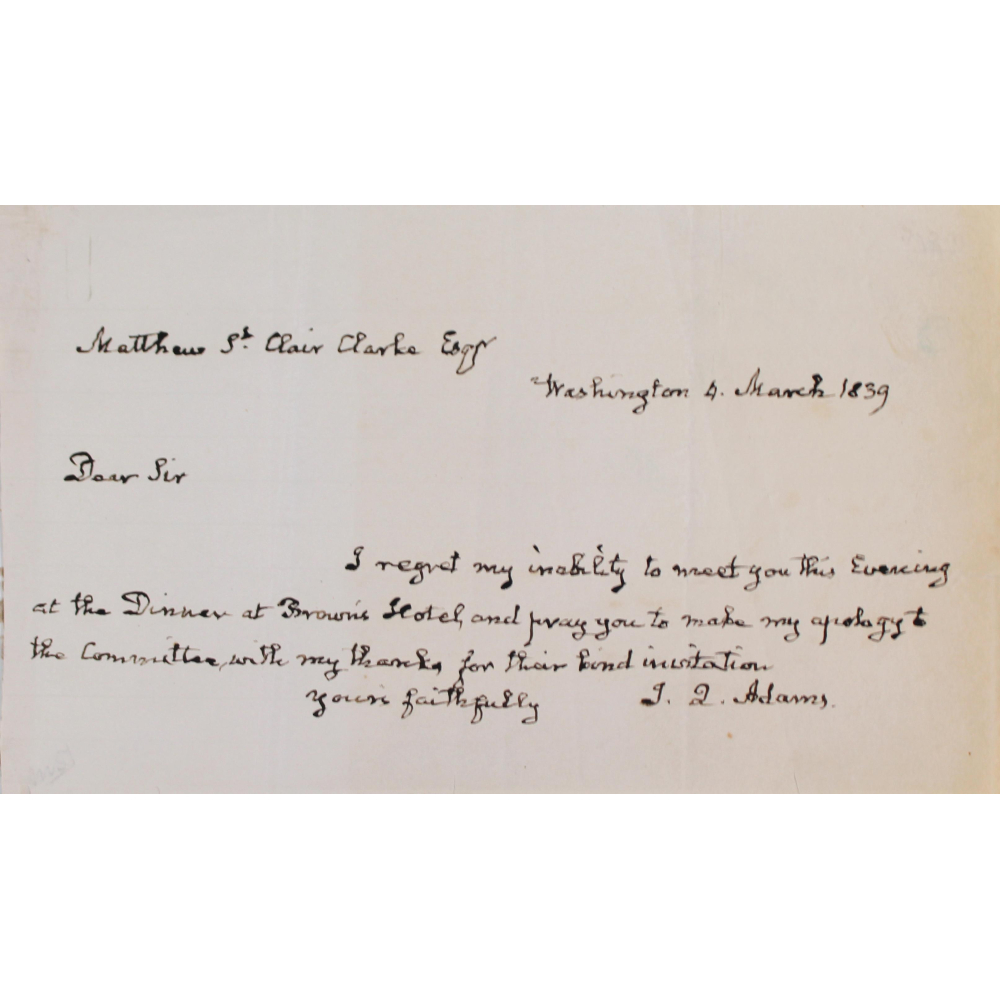 Matthew St. Clair Clarke Esqr
Washington 4. March 1839
Dear Sir
I regret my inability to meet you this Evening
at the Dinner at Brown's Hotel, and pray you to make my apology to
the Committee, with my thanks, for their kind invitation
yours faithfully J. Q. Adams.